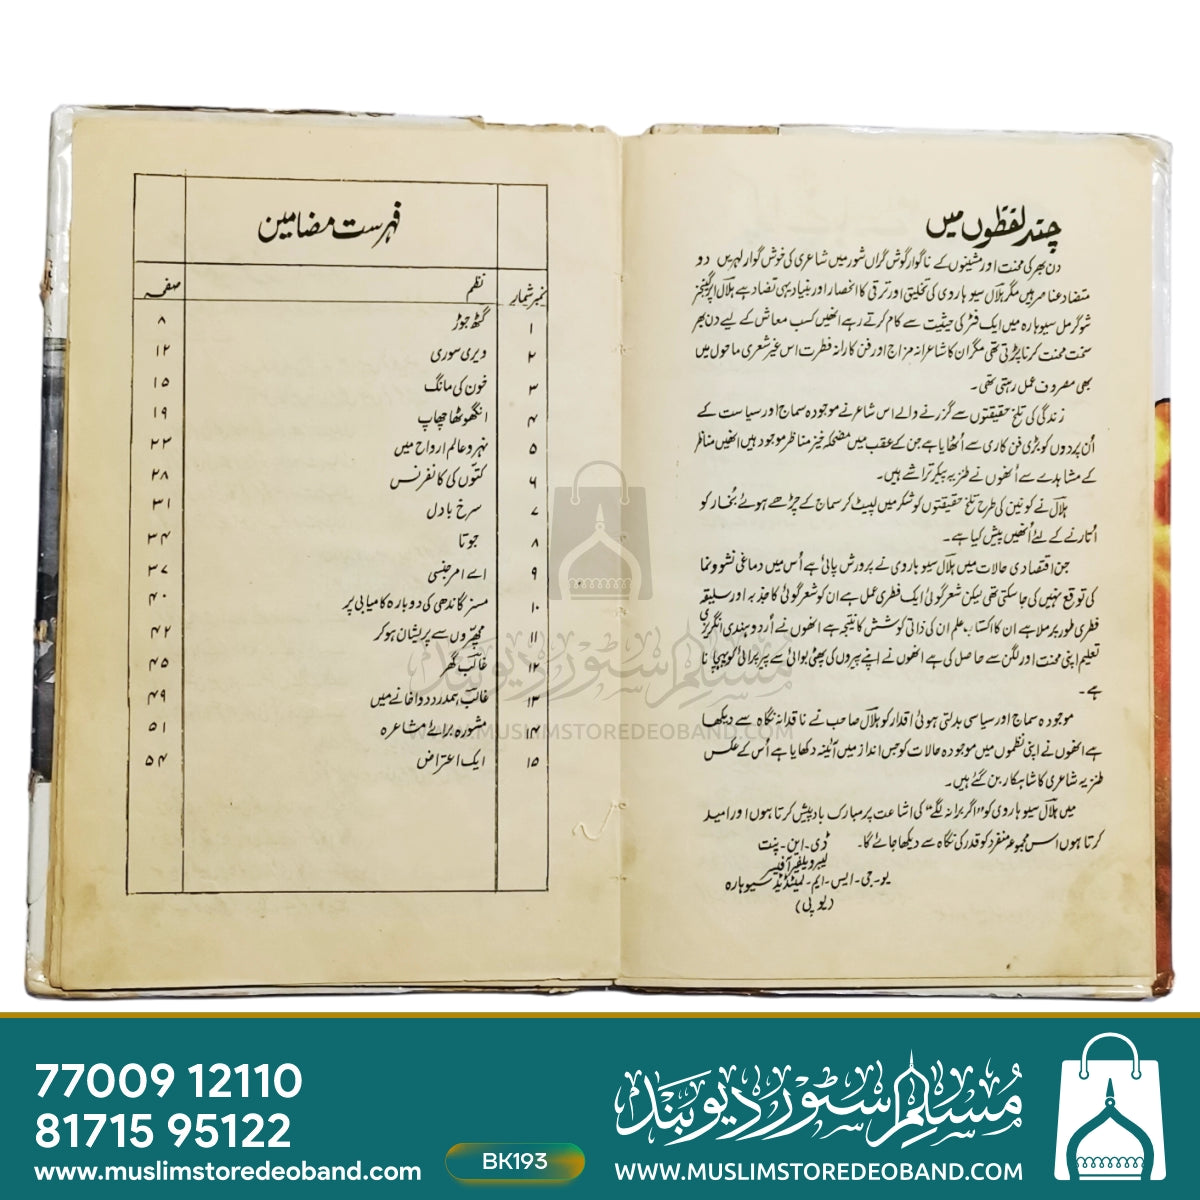 چند لفظوں میں
دن بھر کی محنت اور مشینوں کے ناگوار گوش گراں شور میں شاعری کی خوش گوار لہریں دو
متضاد عناصر ہیں مگر ہلال سیوہاروی کی تخلیق اور ترقی کا انحصار اور بنیاد یہی تضاد ہے ہلال اپر گینجز
شوگر مل سیوہارہ میں ایک فٹر کی حیثیت سے کام کرتے رہے انھیں کسب معاش کے لیے دن بھر
سخت محنت کرنا پڑتی تھی مگر ان کا شاعرانہ مزاج اور فن کارانہ فطرت اس غیر شعری ماحول میں
بھی مصروف عمل رہتی تھی۔
زندگی کی تلخ حقیقتوں سے گزرنے والے اس شاعر نے موجودہ سماج اور سیاست کے
اُن پردوں کو بڑی فن کاری سے اُٹھایا ہے جن کے عقب میں مضحکہ خیز مناظر موجود ہیں انھیں مناظر
کے مشاہدے سے اُنھوں نے طنزیہ پیکر تراشے ہیں۔
ہلال نے کونین کی طرح تلخ حقیقتوں کو شکر میں لپیٹ کر سماج کے چڑھے ہوئے بُخار کو
اُتارنے کے لئے اُنھیں پیش کیا ہے۔
جن اقتصادی حالات میں ہلال سیوہاروی نے پرورش پائی ہے اُس میں دماغی نشوونما
کی توقع نہیں کی جا سکتی تھی لیکن شعر گوئی ایک فطری عمل ہے ان کو شعر گوئی کا جذبہ اور سلیقہ
فطری طور پر ملا ہے ان کا اکتساب علم ان کی ذاتی کوشش کا نتیجہ ہے انھوں نے اُردو ہندی انگریزی
تعلیم اپنی محنت اور لگن سے حاصل کی ہے انھوں نے اپنے پیروں کی پھٹی بوائی سے پیر پرائی کو پہچانا
ہے۔
موجودہ سماج اور سیاسی بدلتی ہوئی اقدار کو ہلال صاحب نے ناقدانہ نگاہ سے دیکھا
ہے انھوں نے اپنی نظموں میں موجودہ حالات کو جس انداز میں آئینہ دکھایا ہے اُس کے عکس
طنزیہ شاعری کا شاہکار بن گئے ہیں۔
میں ہلال سیوہاروی کو "اگر برا نہ لگے" کی اشاعت پر مبارک باد پیش کرتا ہوں اور امید
کرتا ہوں اس مجموعہ منفرد کو قدر کی نگاہ سے دیکھا جائے گا۔
ڈی۔ این۔ پنت
لیبر ویلفیر آفیسر
یو۔ جی۔ ایس۔ ایم۔ لمیٹیڈ سیوہارہ
(یو پی)
فہرست مضامین
نمبر شمار نظم صفحہ
۱ گٹھ جوڑ ۸
۲ ویری سوری ۱۲
۳ خون کی مانگ ۱۵
۴ انگھوٹھا چھاپ ۱۹
۵ نہرو عالم ارواح میں ۲۲
۶ کتوں کی کانفرنس ۲۸
۷ سرخ بادل ۳۱
۸ جوتا ۳۴
۹ اے امرجنسی ۳۷
۱۰ مسز گاندھی کی دوبارہ کامیابی پر ۴۰
۱۱ مچھّروں سے پریشان ہو کر ۴۲
۱۲ غالب گھر ۴۵
۱۳ غالب ہمدرد دواخانے میں ۴۹
۱۴ مشورہ برائے مشاعرہ ۵۱
۱۵ ایک اعتراض ۵۴
مسلم سٹور دیوبند
WWW.MUSLIMSTOREDEOBAND.COM
77009 12110
81715 95122
www.muslimstoredeoband.com
BK193
مسلم سٹور دیوبند
WWW.MUSLIMSTOREDEOBAND.COM